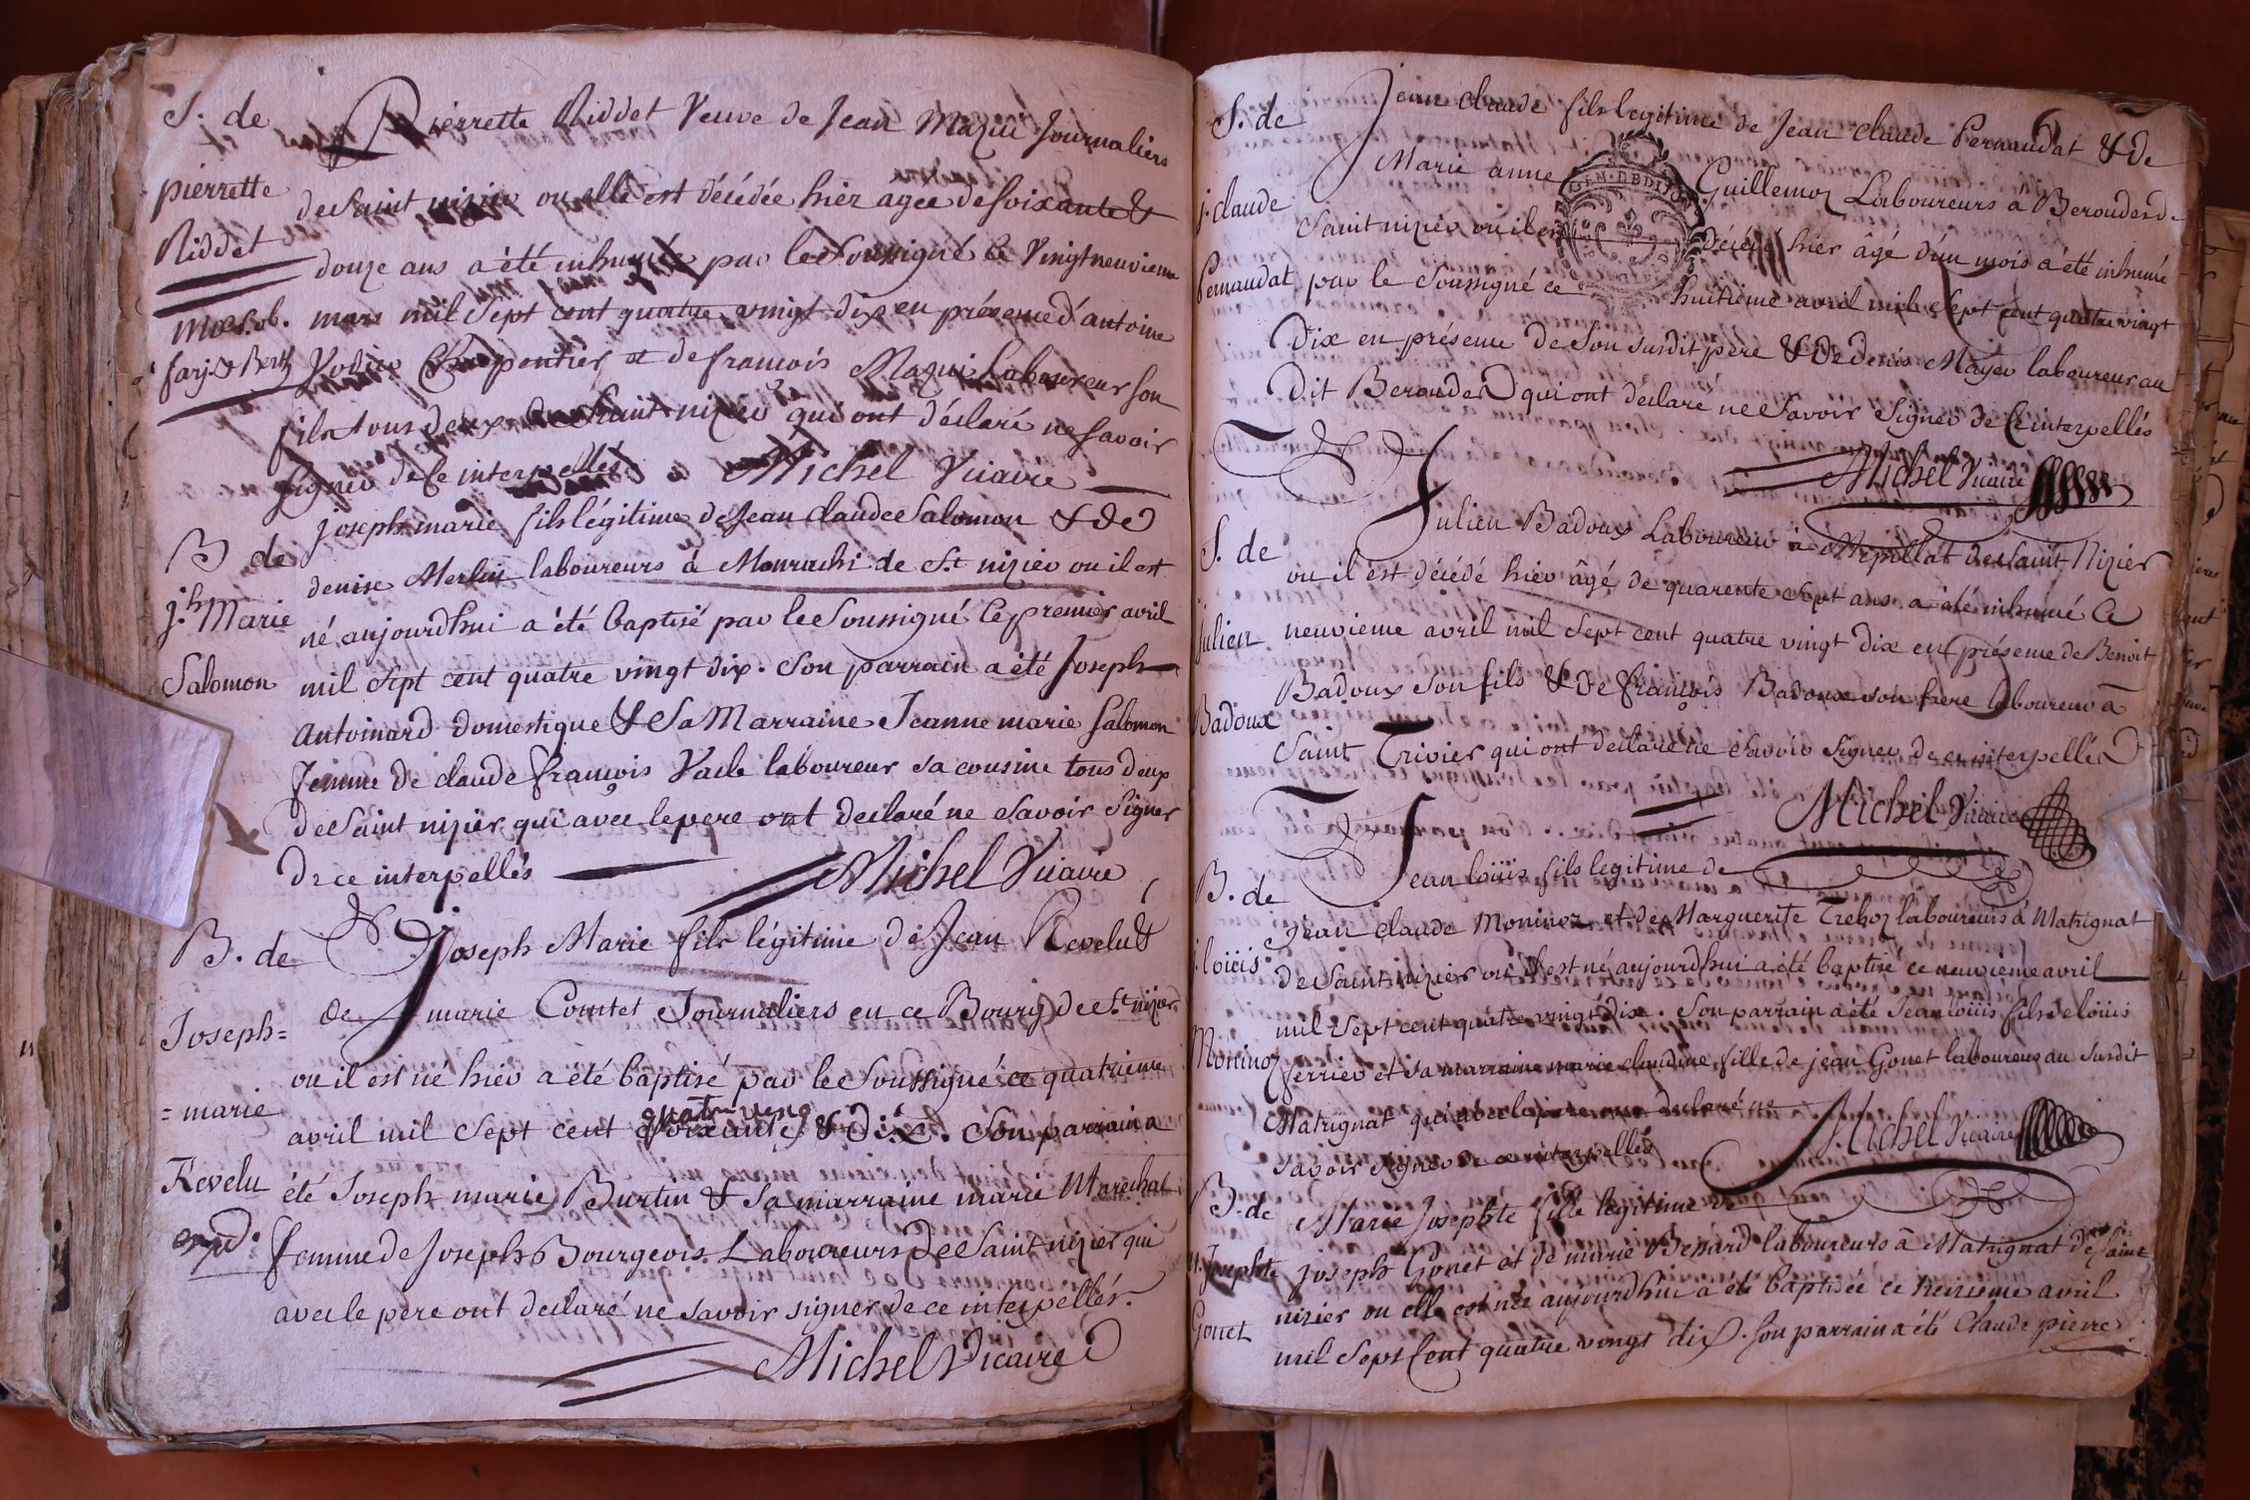 S. de
pierrette
Riddet
Pierrette Riddet Veuve de Jean Mazui Journaliers
de Saint nizier ou elle est décédée hier agee de soixante &
douze ans a été inhumée par le Soussigné le Vingtneuvieme
mars mil Sept cent quatre vingt dix en présence d'antoine
Charpentier et de francois Mazui Laboureur son
fils tous deux de Saint nizier qui ont déclaré ne savoir
signer de ce interpellés Michel Vicaire
B de
jh. Marie
Salomon
joseph marie fils légitime de Jean claude Salomon & de
denise Merlin laboureurs à Monrachi de St nizier ou il est
né aujourdhui a été baptisé par le Soussigné le premier avril
mil Sept cent quatre vingt dix. Son parrain a été Joseph
Antoinard domestique & Sa Marraine Jeanne marie Salomon
femme de claude francois laboureur sa cousine tous deux
de Saint nizier qui avec le pere ont declaré ne Savoir Signer
de ce interpellés Michel Vicaire
B. de
Joseph=
=marie
Revelu
expd.
Joseph Marie fils légitime de Jean Revelu &
de marie Comtet Journaliers en ce Bourg de St nizier
ou il est né hier a été baptisé par le Soussigné ce quatrieme
quatre vingt
avril mil Sept cent soixante & dix. Son parrain a
été Joseph marie Burtin & Sa marraine marie Marechal
femme de Joseph Bourgeois Laboureurs de Saint nizier qui
avec le père ont declaré ne savoir signer de ce interpellés.
Michel Vicaire
S. de
j. claude
Pernaudat
Jean claude fils legitime de Jean claude Pernaudat & de
Marie anne Guillemoz Laboureurs a Berouder de
Saint nizier ou il est décédé hier âgé d'un mois a été inhumé
par le Soussigné ce huitieme avril mil Sept cent quatre vingt
Dix en présence de Son susdit père & de denis Mayer laboureur au
Dit Berouder qui ont déclaré ne Savoir Signer de ce interpellés
Michel Vicaire
S. de
julien
Badoux
Julien Badoux Laboureur à Mépillat de Saint Nizier
ou il est décédé hier âgé de quarente Sept ans a été inhumé ce
neuvieme avril mil Sept cent quatre vingt dix en présence de Benoit
Badoux Son fils & de francois Badoux son frere laboureur à
Saint Trivier qui ont déclaré ne Savoir Signer de ce interpellés
Michel Vicaire
B. de
j. loüis
Moninoz
Jean loüis fils legitime de
Jean claude Moninoz et de Marguerite Treboz laboureurs à Matrignat
de Saint nizier ou il est né aujourdhui a été baptisé ce neuvieme avril
mil Sept cent quatre vingt dix. Son parrain a été Jean loüis fils de loüis
ferrier et sa marraine marie claudine fille de jean Gonet laboureur au Susdit
Matrignat qui avec le père ont declaré ne
Savoir Signer de ce interpellés Michel Vicaire
B. de
M. Josephte
Gonet
Marie Josephte fille legitime de
joseph Gonet et de marie Benard laboureurs à Matrignat de Saint
nizier ou elle est née aujourdhui a été baptisée ce treizieme avril
mil Sept Cent quatre vingt dix. Son parrain a été Claude pierre